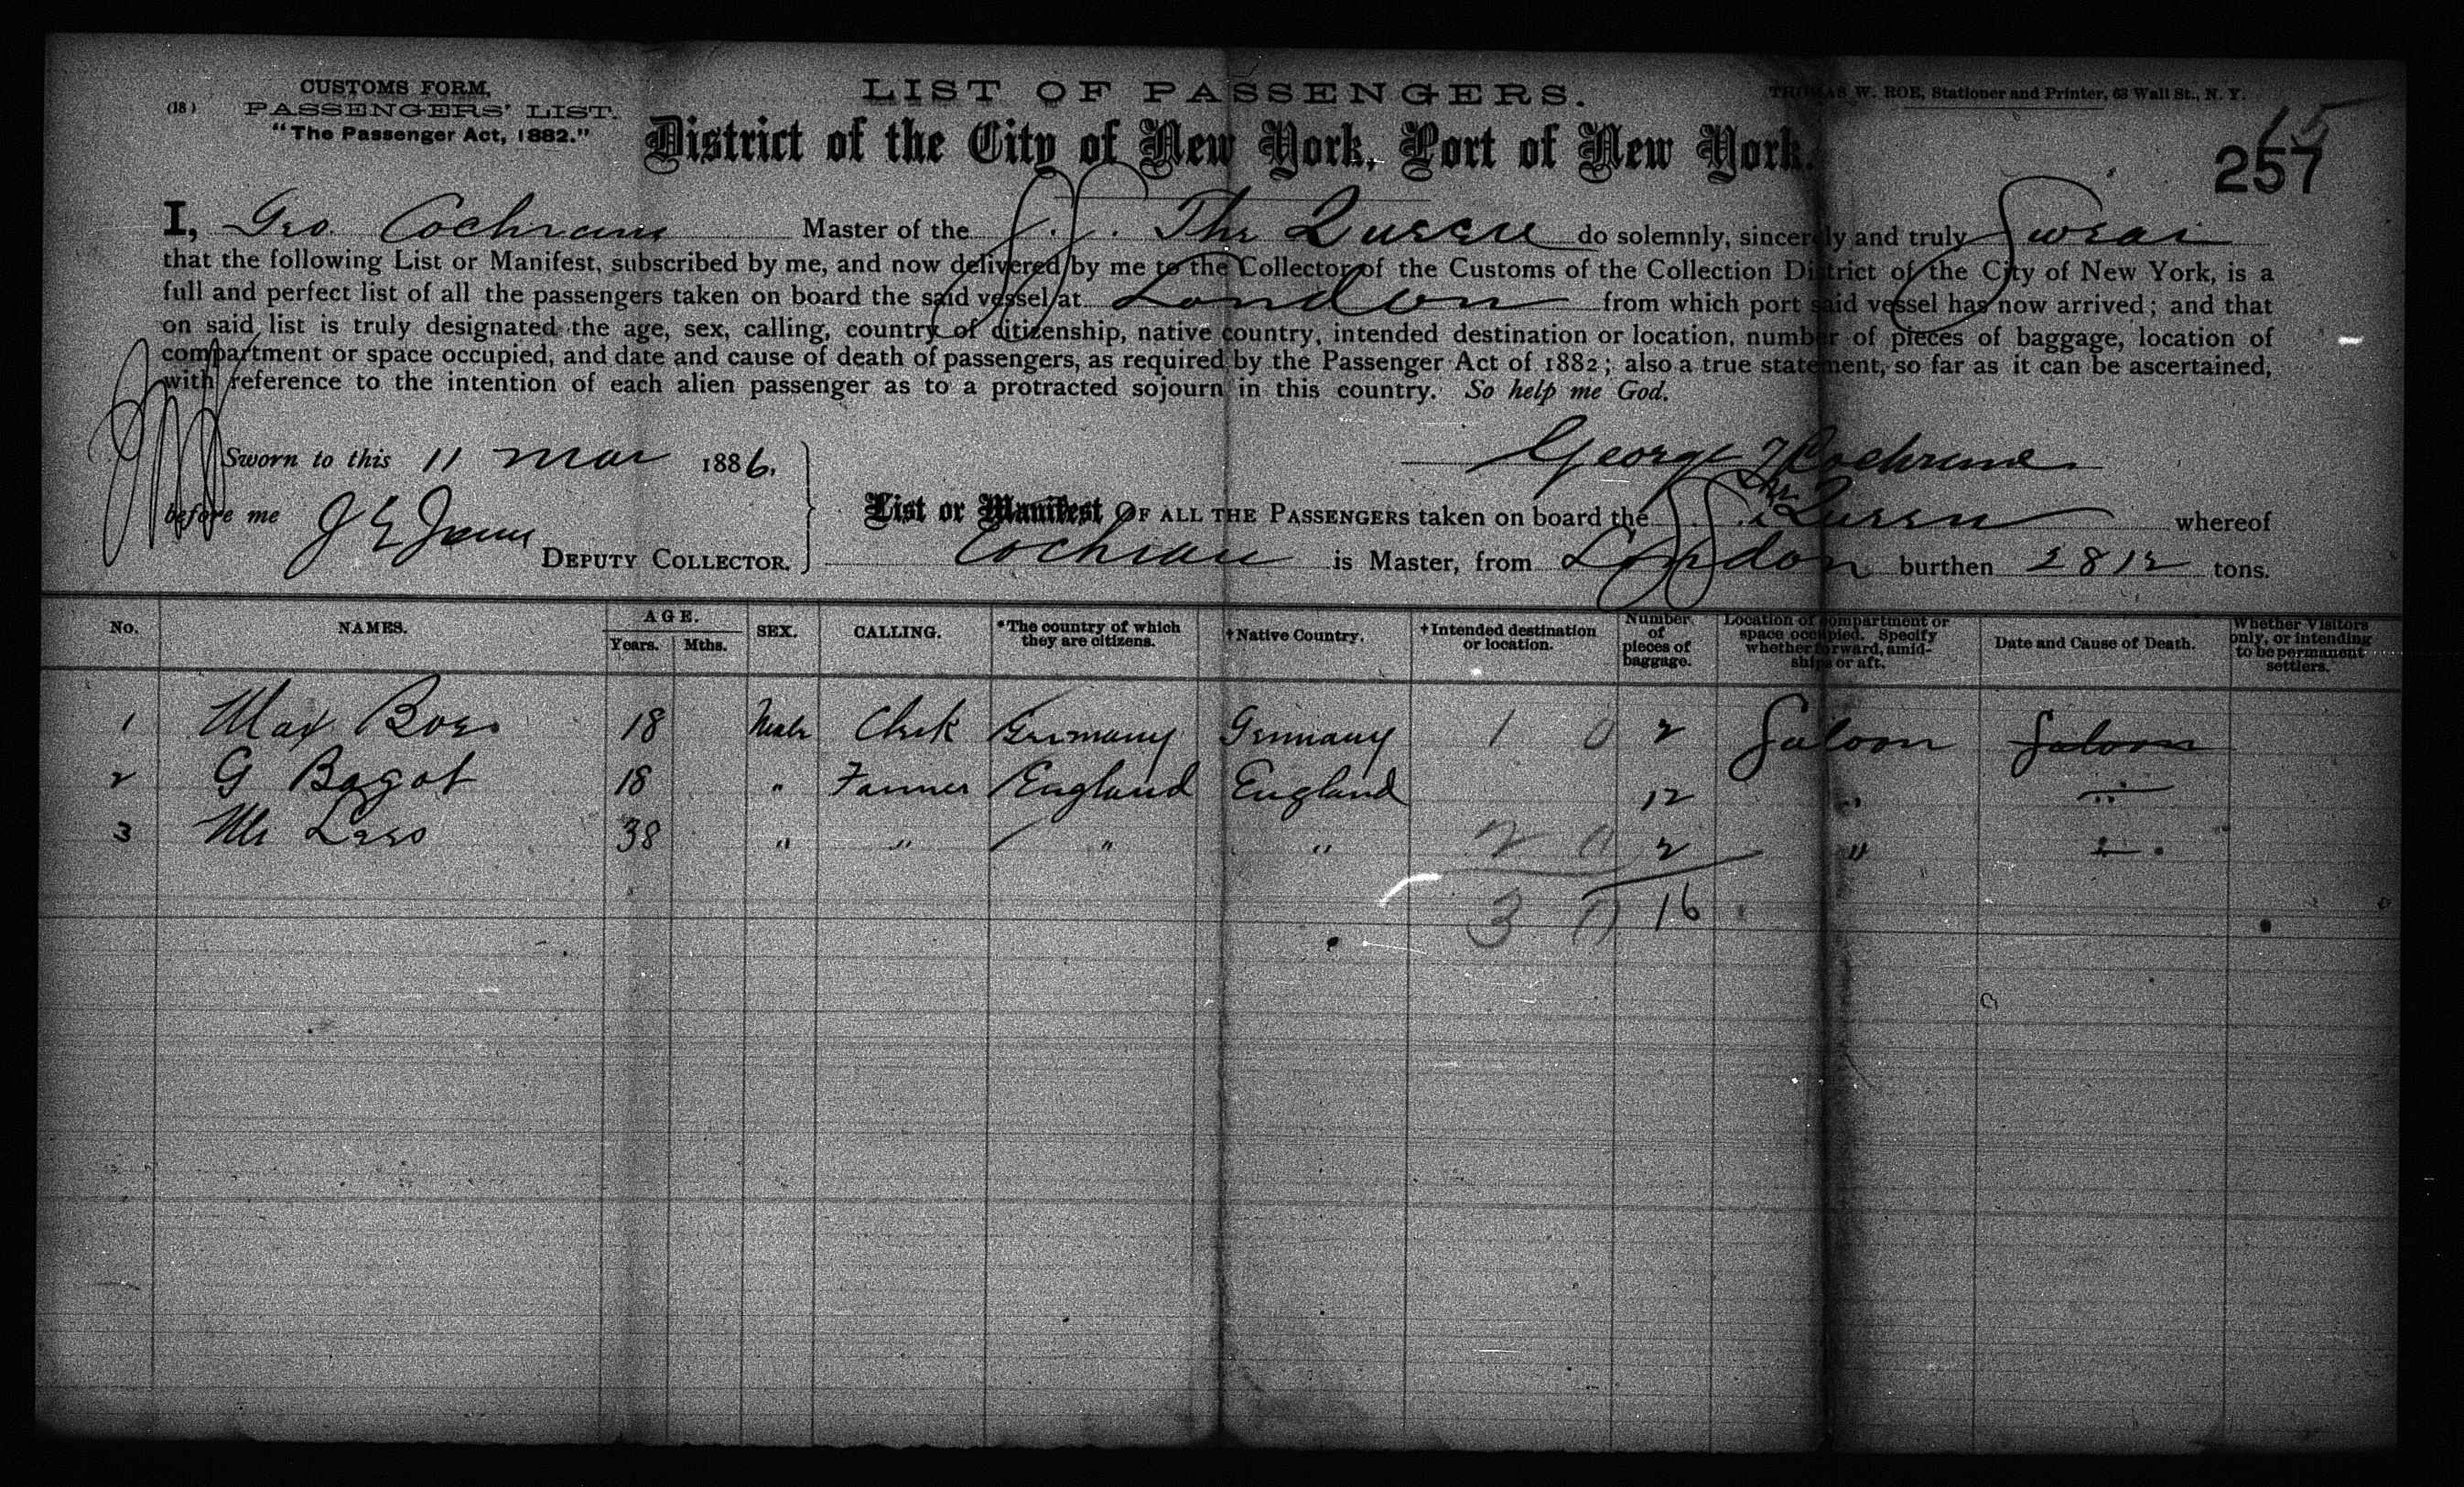 CUSTOMS FORM.
(18) PASSENGERS' LIST.
"The Passenger Act, 1882."
LIST OF PASSENGERS.
THOMAS W. ROE, Stationer and Printer, 63 Wall St., N. Y.
District of the City of New York, Port of New York.
15
257
I, Geo. Cochrane Master of the S.S. The Queen do solemnly, sincerely and truly Swear
that the following List or Manifest, subscribed by me, and now delivered by me to the Collector of the Customs of the Collection District of the City of New York, is a
full and perfect list of all the passengers taken on board the said vessel at London from which port said vessel has now arrived; and that
on said list is truly designated the age, sex, calling, country of citizenship, native country, intended destination or location, number of pieces of baggage, location of
compartment or space occupied, and date and cause of death of passengers, as required by the Passenger Act of 1882; also a true statement, so far as it can be ascertained,
with reference to the intention of each alien passenger as to a protracted sojourn in this country. So help me God.
Sworn to this 11 Mar 1886,
George Cochrane
before me J E Jones DEPUTY COLLECTOR.
List or Manifest OF ALL THE PASSENGERS taken on board the S.S. The Queen whereof
Cochrane is Master, from London burthen 2812 tons.
No. NAMES. AGE. Years. Mths. SEX. CALLING. *The country of which they are citizens. †Native Country. †Intended destination or location. Number of pieces of baggage. Location of compartment or space occupied. Specify whether forward, amidships or aft. Date and Cause of Death. Whether Visitors only, or intending to be permanent settlers.
1 Max Boes 18 Male Clerk Germany Germany 1 0 2 Saloon Saloon
2 G Bagot 18 " Farmer England England 12 " "
3 Mr Lees 38 " " " " 2 0 2 " "
3 0 16